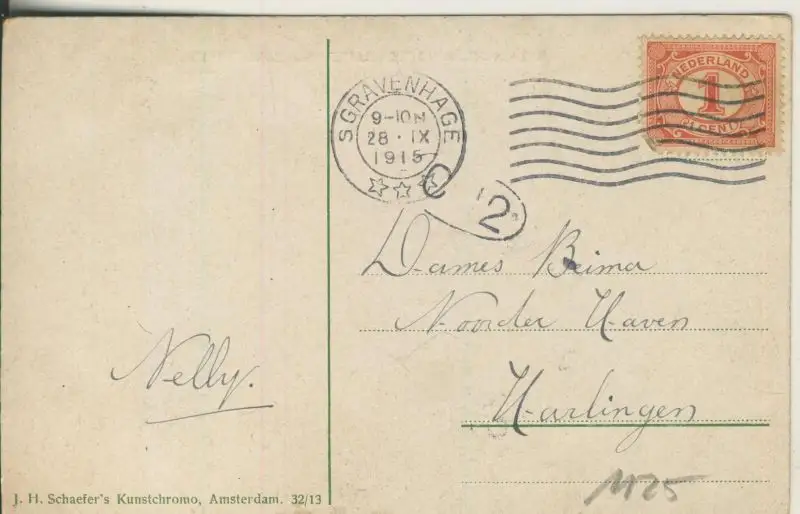 'S GRAVENHAGE
9-10 N
28 · IX
1915
NEDERLAND
1
CENT
C 2
Dames Beima
Noorder Haven
Harlingen
Nelly.
J. H. Schaefer's Kunstchromo, Amsterdam. 32/13
1125